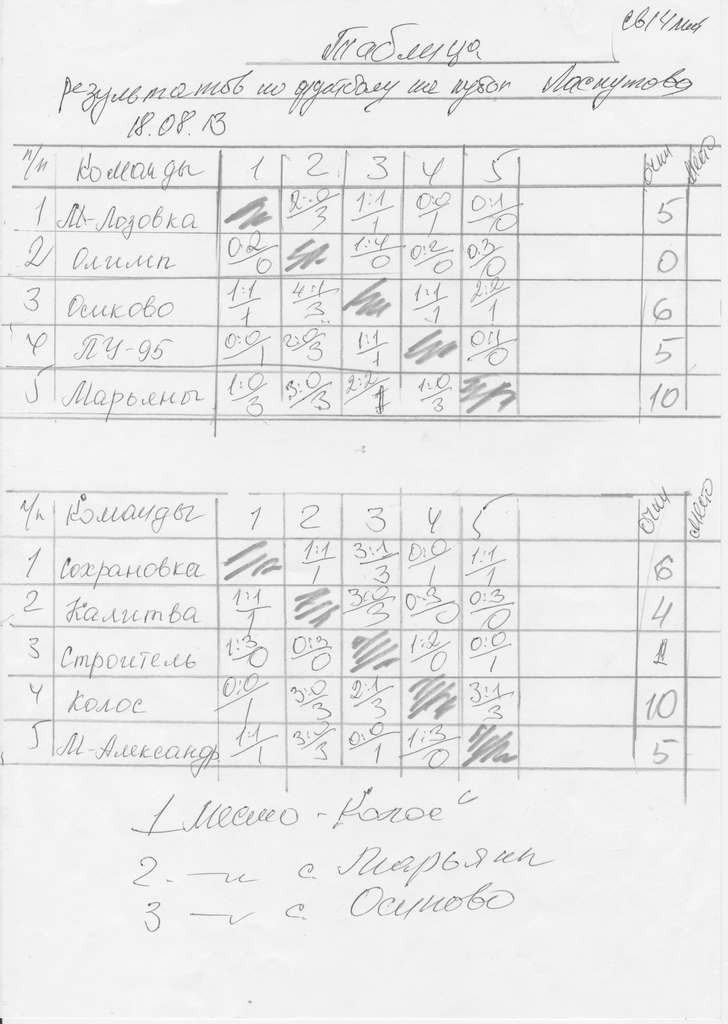 Таблица
результатов по футболу на кубок Ласкутова
18.08.13
п/п Команды 1 2 3 4 5 очки место
1 М-Лозовка 2:0/3 1:1/1 0:0/1 0:1/0 5
2 Олимп 0:2/0 1:4/0 0:2/0 0:3/0 0
3 Осиково 1:1/1 4:1/3 1:1/1 2:2/1 6
4 ПУ-95 0:0/1 2:0/3 1:1/1 0:1/0 5
5 Марьяны 1:0/3 3:0/3 2:2/1 1:0/3 10
п/п Команды 1 2 3 4 5 очки место
1 Сохрановка 1:1/1 3:1/3 0:0/1 1:1/1 6
2 Калитва 1:1/1 3:0/3 0:3/0 0:3/0 4
3 Строитель 1:3/0 0:3/0 1:2/0 0:0/1 1
4 Колос 0:0/1 3:0/3 2:1/3 3:1/3 10
5 М-Александр 1:1/1 3:0/3 0:0/1 1:3/0 5
1 место - Колос"
2 -"- с. Марьяны
3 -"- с. Осиково